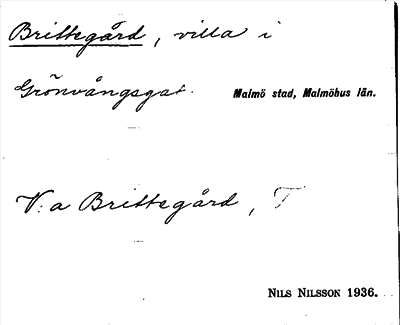 Brittegård, villa i
Grönvångsgat. Malmö stad, Malmöhus län.
V:a Brittegård, T
NILS NILSSON 1936.